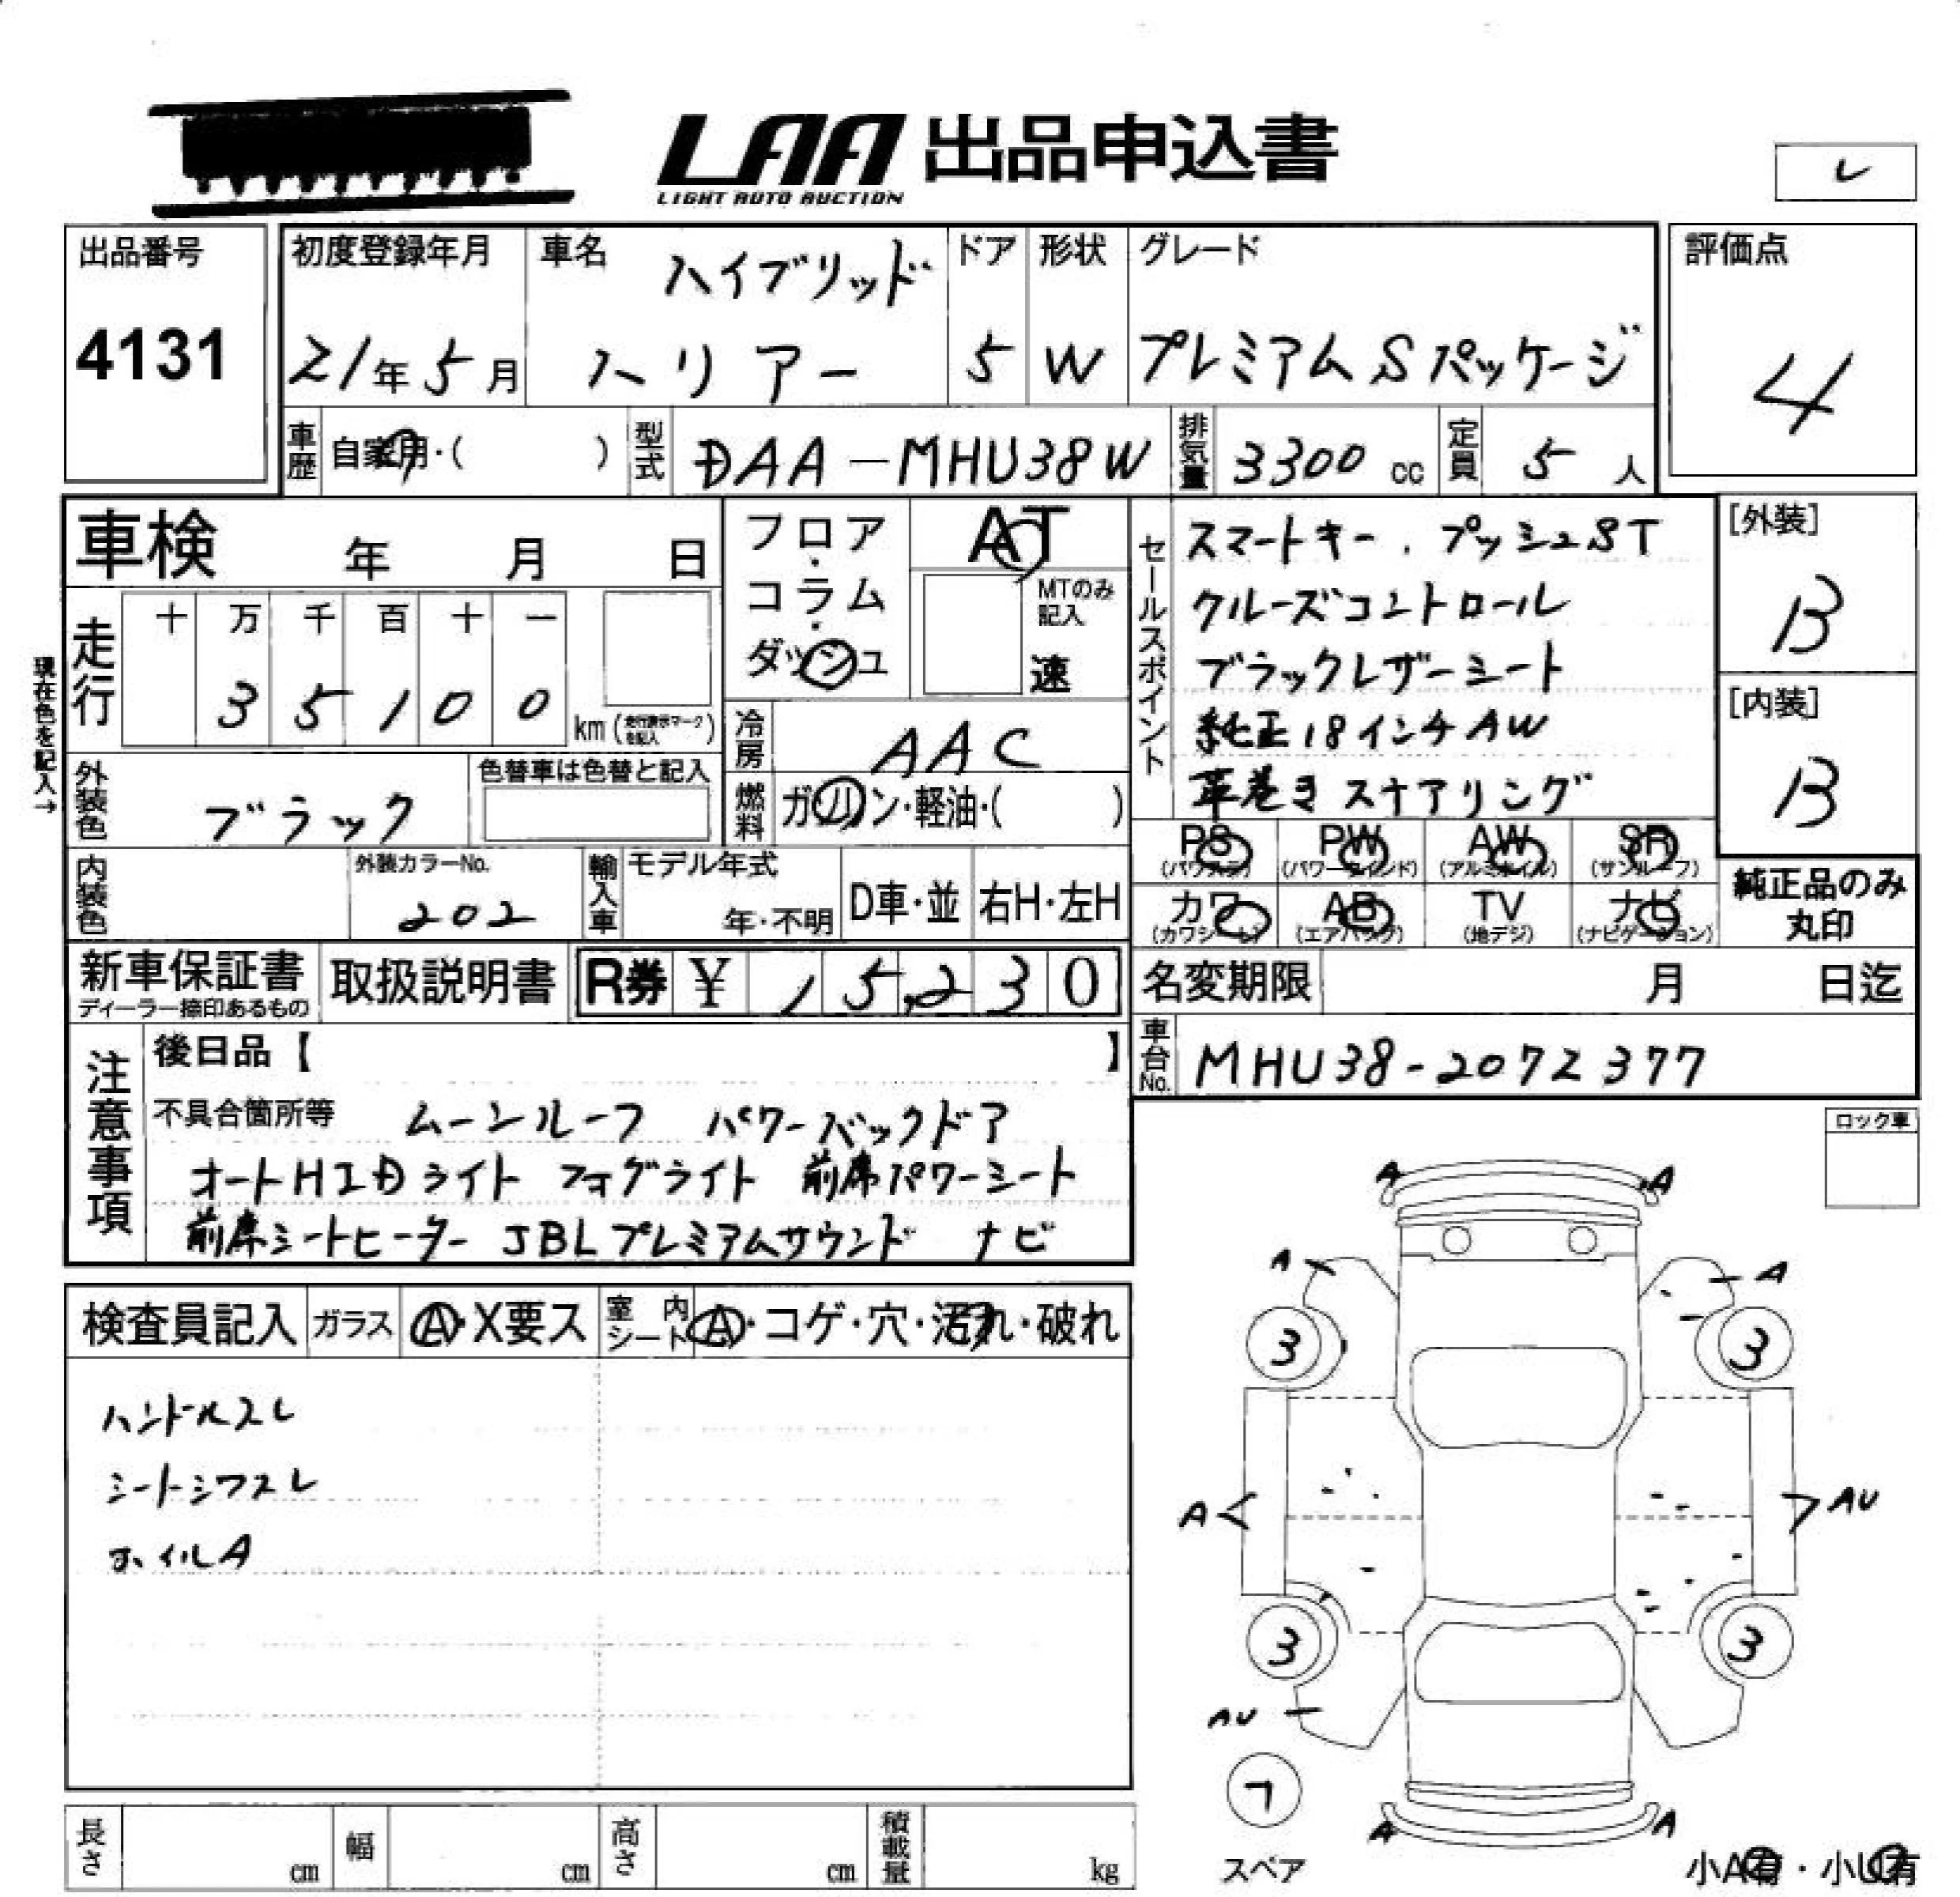 LAA 出品申込書
LIGHT AUTO AUCTION
レ
出品番号
4131
初度登録年月
21年5月
車名
ハイブリッド
ハリアー
ドア
5
形状
W
グレード
プレミアムSパッケージ
評価点
4
車歴 自家用・( )
型式 DAA-MHU38W
排気量 3300 cc
定員 5 人
車検 年 月 日
走行
十 万 千 百 十 一
3 5 1 0 0 km (走行表示マークを記入)
現在色を記入→
フロア・コラム・ダッシュ
AT
MTのみ記入
速
冷房 AAC
燃料 ガソリン・軽油・( )
外装色 ブラック
色替車は色替と記入
内装色
外装カラーNo.
202
輸入車
モデル年式
年・不明
D車・並
右H・左H
セールスポイント
スマートキー.プッシュST
クルーズコントロール
ブラックレザーシート
純正18インチAW
革巻きステアリング
[外装]
B
[内装]
B
PS (パワステ)
PW (パワーウインド)
AW (アルミホイル)
SR (サンルーフ)
カワ (カワシート)
AB (エアバッグ)
TV (地デジ)
ナビ (ナビゲーション)
純正品のみ
丸印
新車保証書
ディーラー捺印あるもの
取扱説明書
R券 ¥ 15,230
名変期限 月 日迄
車台No. MHU38-2072377
注意事項
後日品【 】
不具合箇所等 ムーンルーフ パワーバックドア
オートHIDライト フォグライト 前席パワーシート
前席シートヒーター JBLプレミアムサウンド ナビ
ロック車
検査員記入
ガラス
A・X要ス
室内シート
A・コゲ・穴・汚れ・破れ
ハンドルスレ
シートシワスレ
ホイルA
A A
A A
3 3
A AU
3 3
AU
フ
スペア
A A
小A有・小U有
長さ cm
幅 cm
高さ cm
積載量 kg